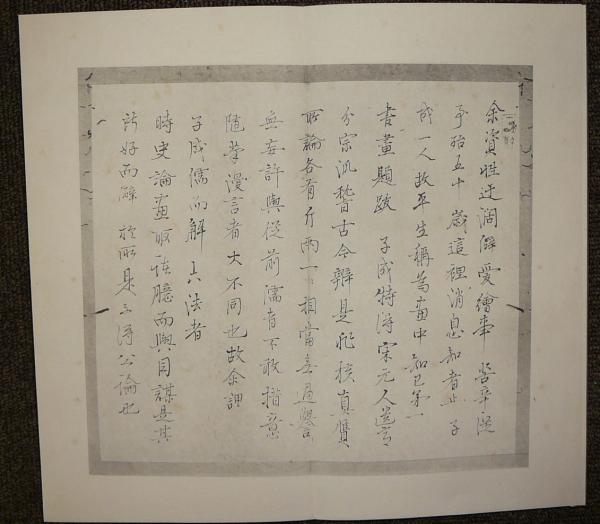 余資性迂濶僻愛繪事 苦辛從
事殆五十歳這裡消息知者止 子
成一人故平生稱爲畫中知己第一
書畫題跋 子成特得宋元人遺
分宗派稽古今辯是非核真贋
所論各有斤兩一一相當無過譽
無妄許與從前儒者不敢措意
隨筆漫言者大不同也故余謂
子成儒而解六法者
時史論畫取諸臆而與目謀是其
所好而解於所是不得公論也